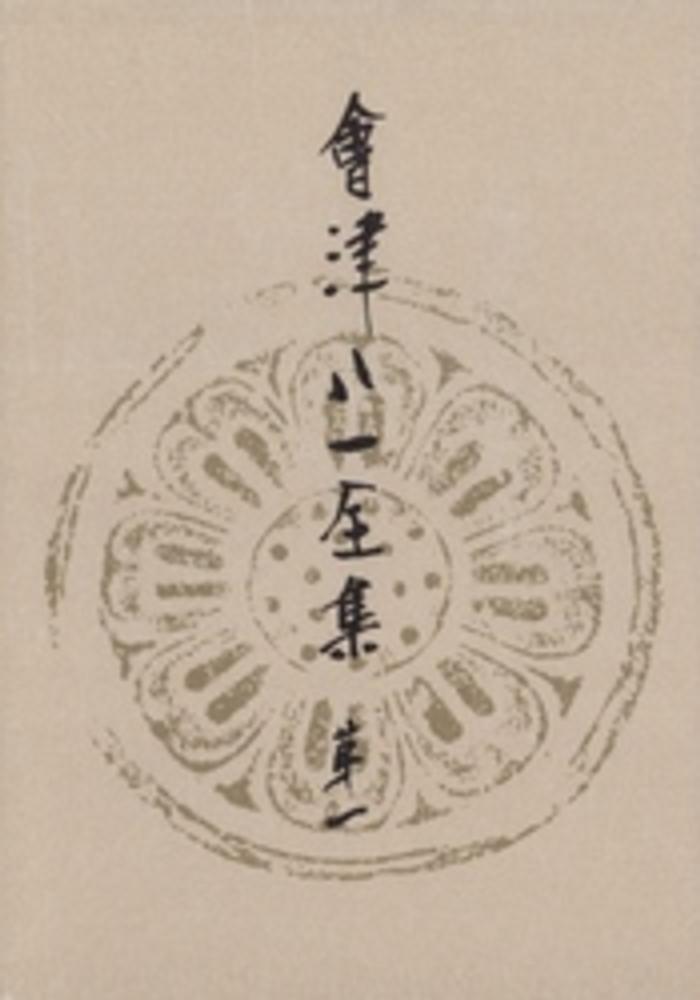 會津八一全集 第一